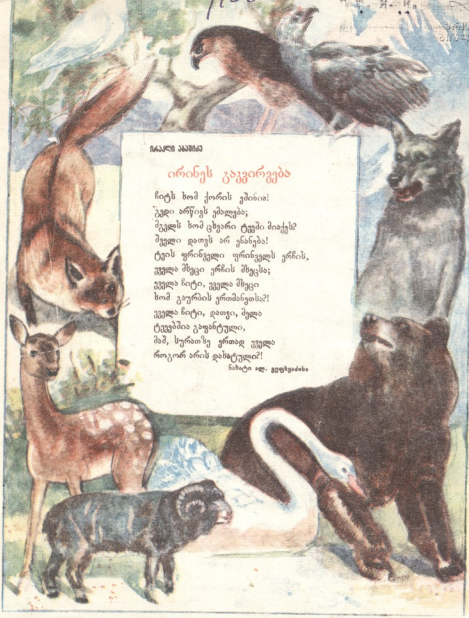 ირაკლი აბაშიძე
ირინეს გაკვირვება
ჩიტს ხომ ქორის ეშინია!
გედი არწივს ემალება;
მგელს ხომ ცხვარი ტყეში მიაქვს?
შველი დათვს არ ენანება!
ტყის ფრინველი ფრინველს ერჩის,
ყველა მხეცი ერჩის მხეცსა;
ყველა ჩიტი, ყველა მხეცი
ხომ გაურბის ერთმანეთსა?!
ყველა ჩიტი, დათვი, მელა
ტყეებშია გაფანტული,
მაშ, სურათზე ერთად ყველა
როგორ არის დახატული?!
ნახატი ალ.